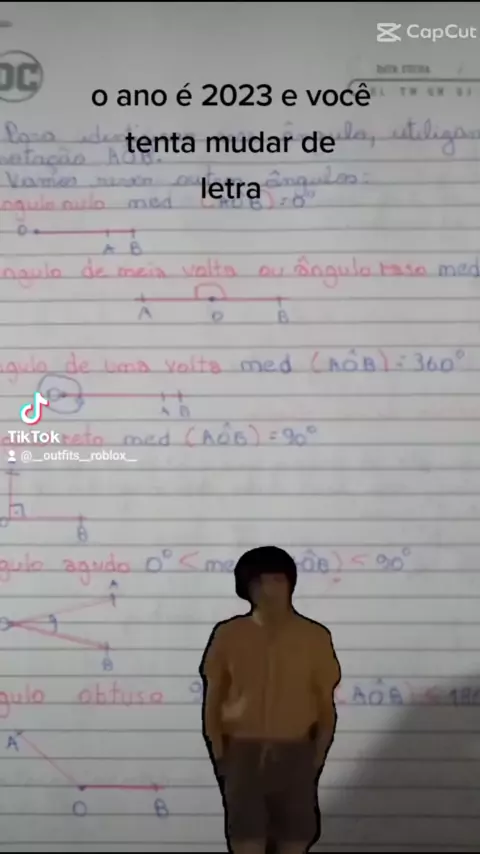 CapCut
DC
o ano é 2023 e você
tenta mudar de
letra
ângulo, utilizan
notação AÔB.
Vamos rever outros ângulos:
ngulo nulo med (AÔB)=0°
O A B
ngulo de meia volta ou ângulo raso med
A O B
ngulo de uma volta med (AÔB)=360°
A B
TikTok
reto med (AÔB)=90°
@__outfits__roblox__
B
gulo agudo 0°< ÔB)<90°
A
B
gulo obtuso AÔB)<180
A
O B